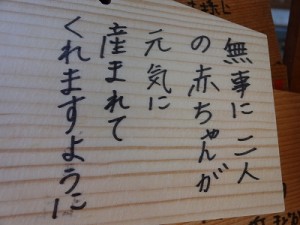 無事に 二人
の赤ちゃんが
元気に
産まれて
くれますように